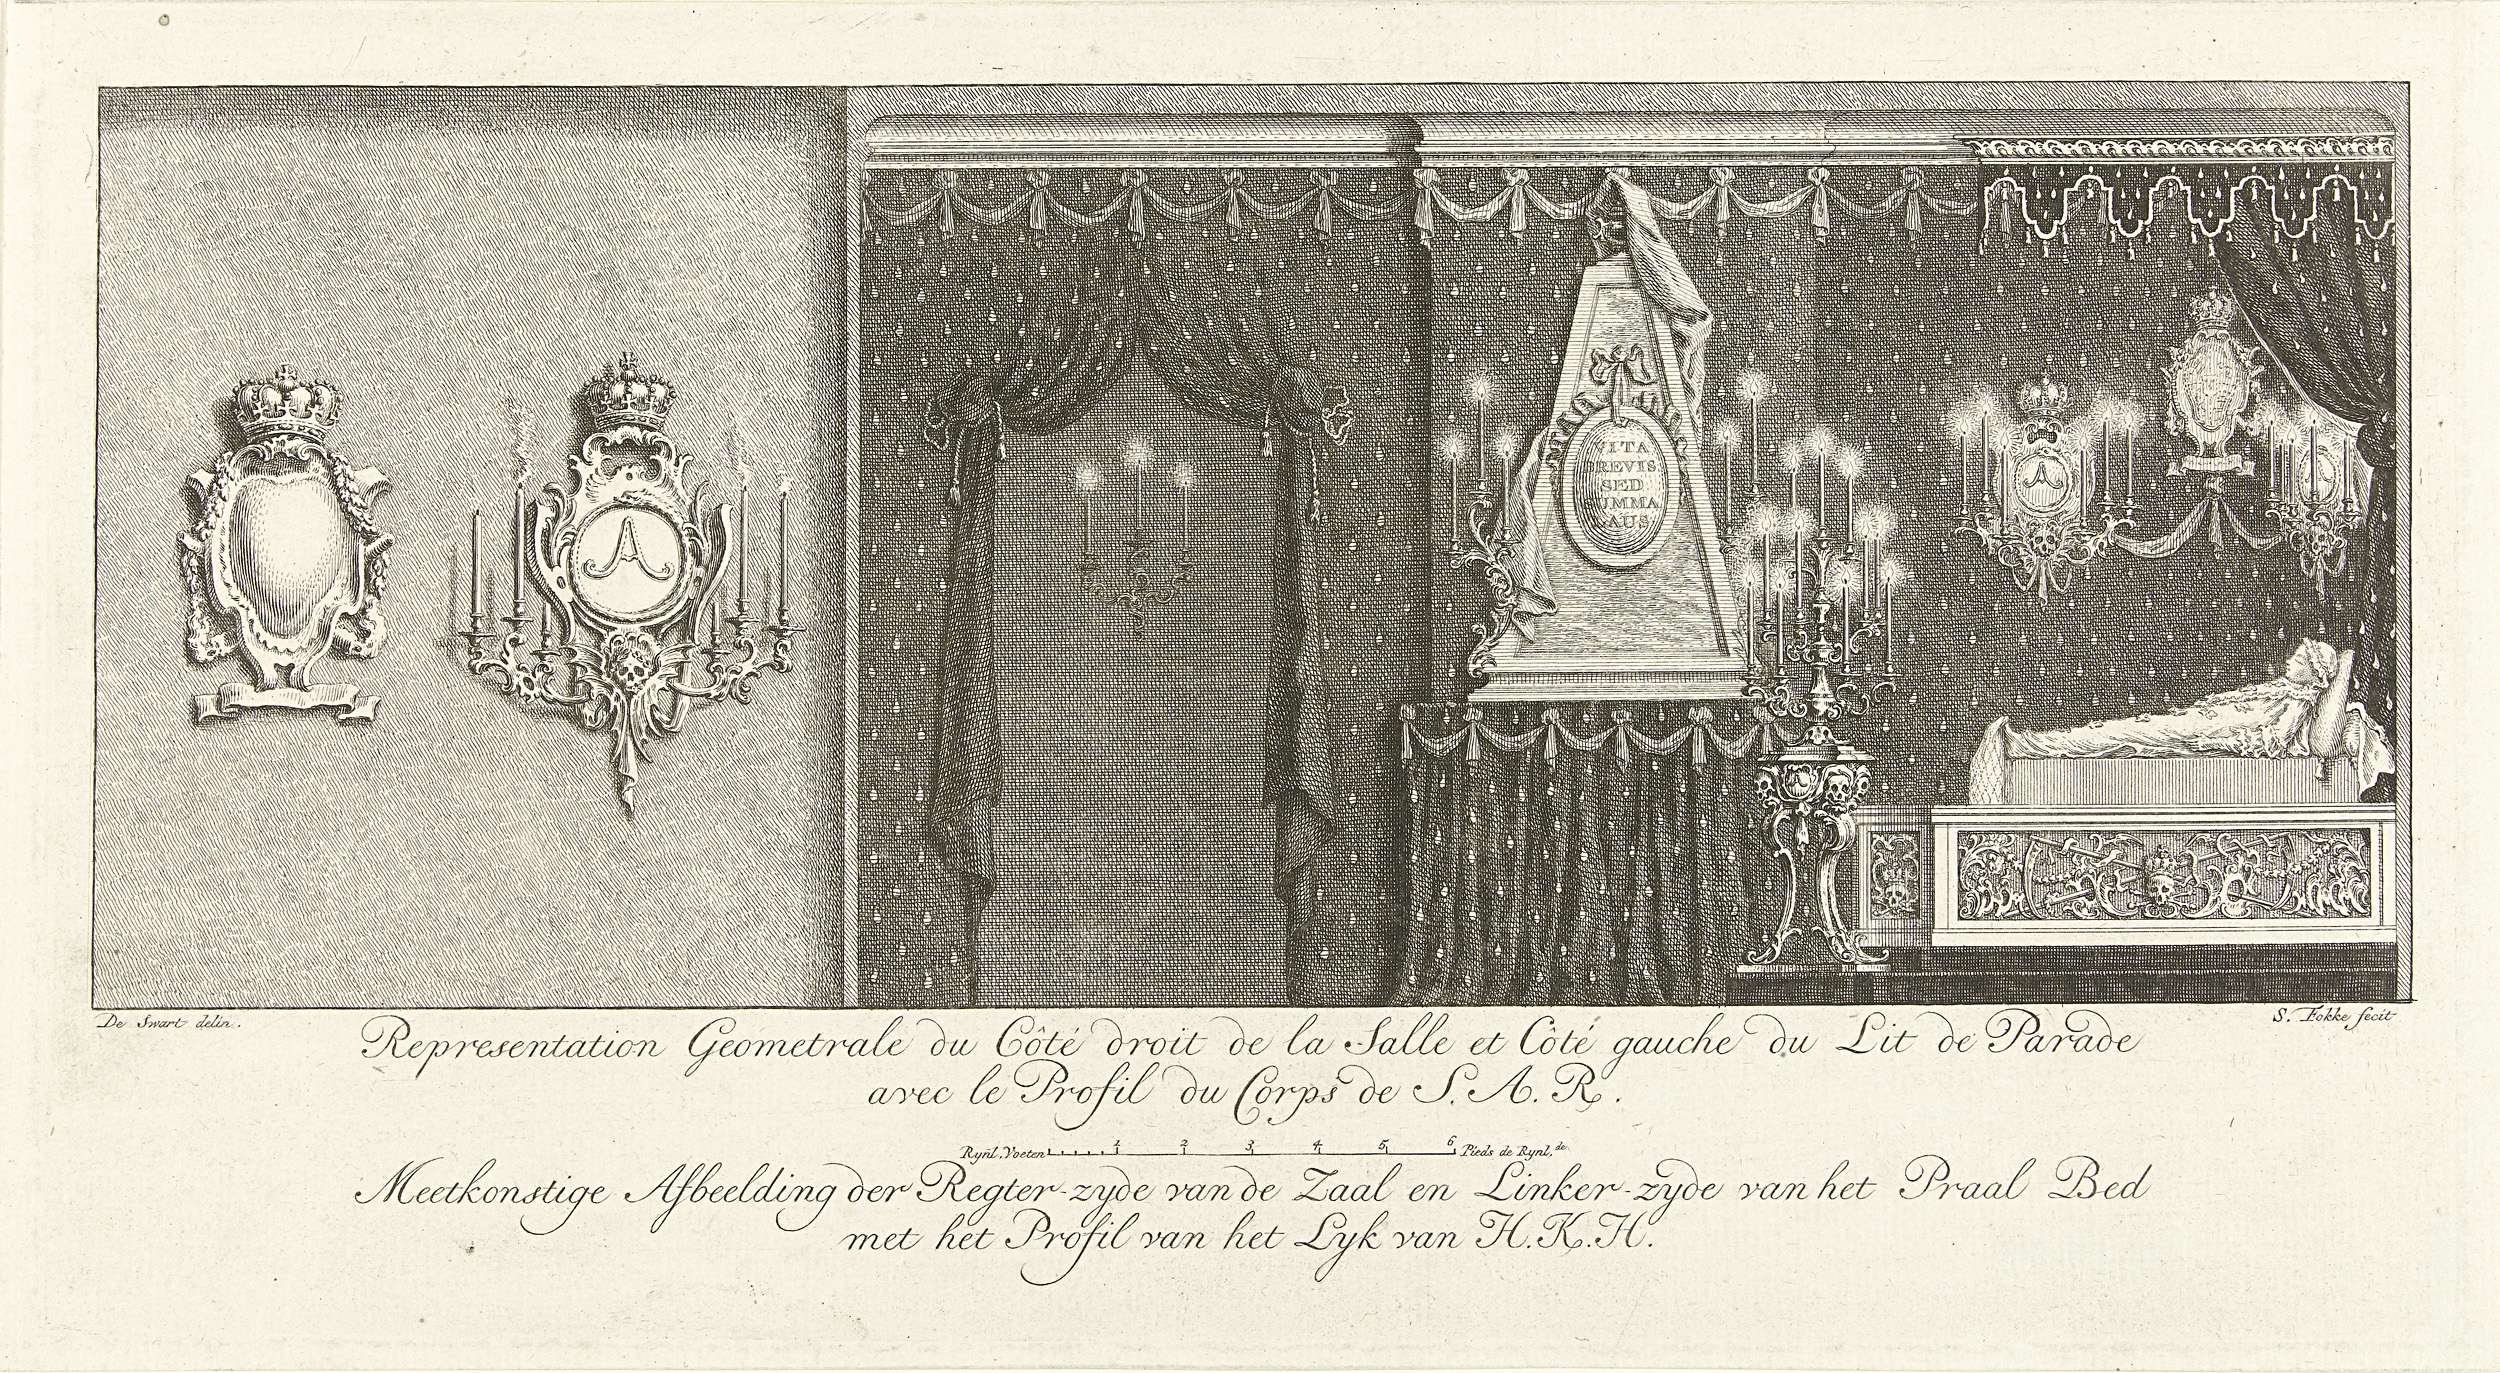 A
VITA
BREVIS
SED
UMMA
AUS
A
De Swart delin.
S. Fokke fecit
Representation Geometrale du Côté droit de la Salle et Côté gauche du Lit de Parade
avec le Profil du Corps de S. A. R.
Rynl. Voeten 1 2 3 4 5 6 Pieds de Rynl.de
Meetkonstige Afbeelding der Regter-zyde van de Zaal en Linker-zyde van het Praal Bed
met het Profil van het Lyk van H. K. H.